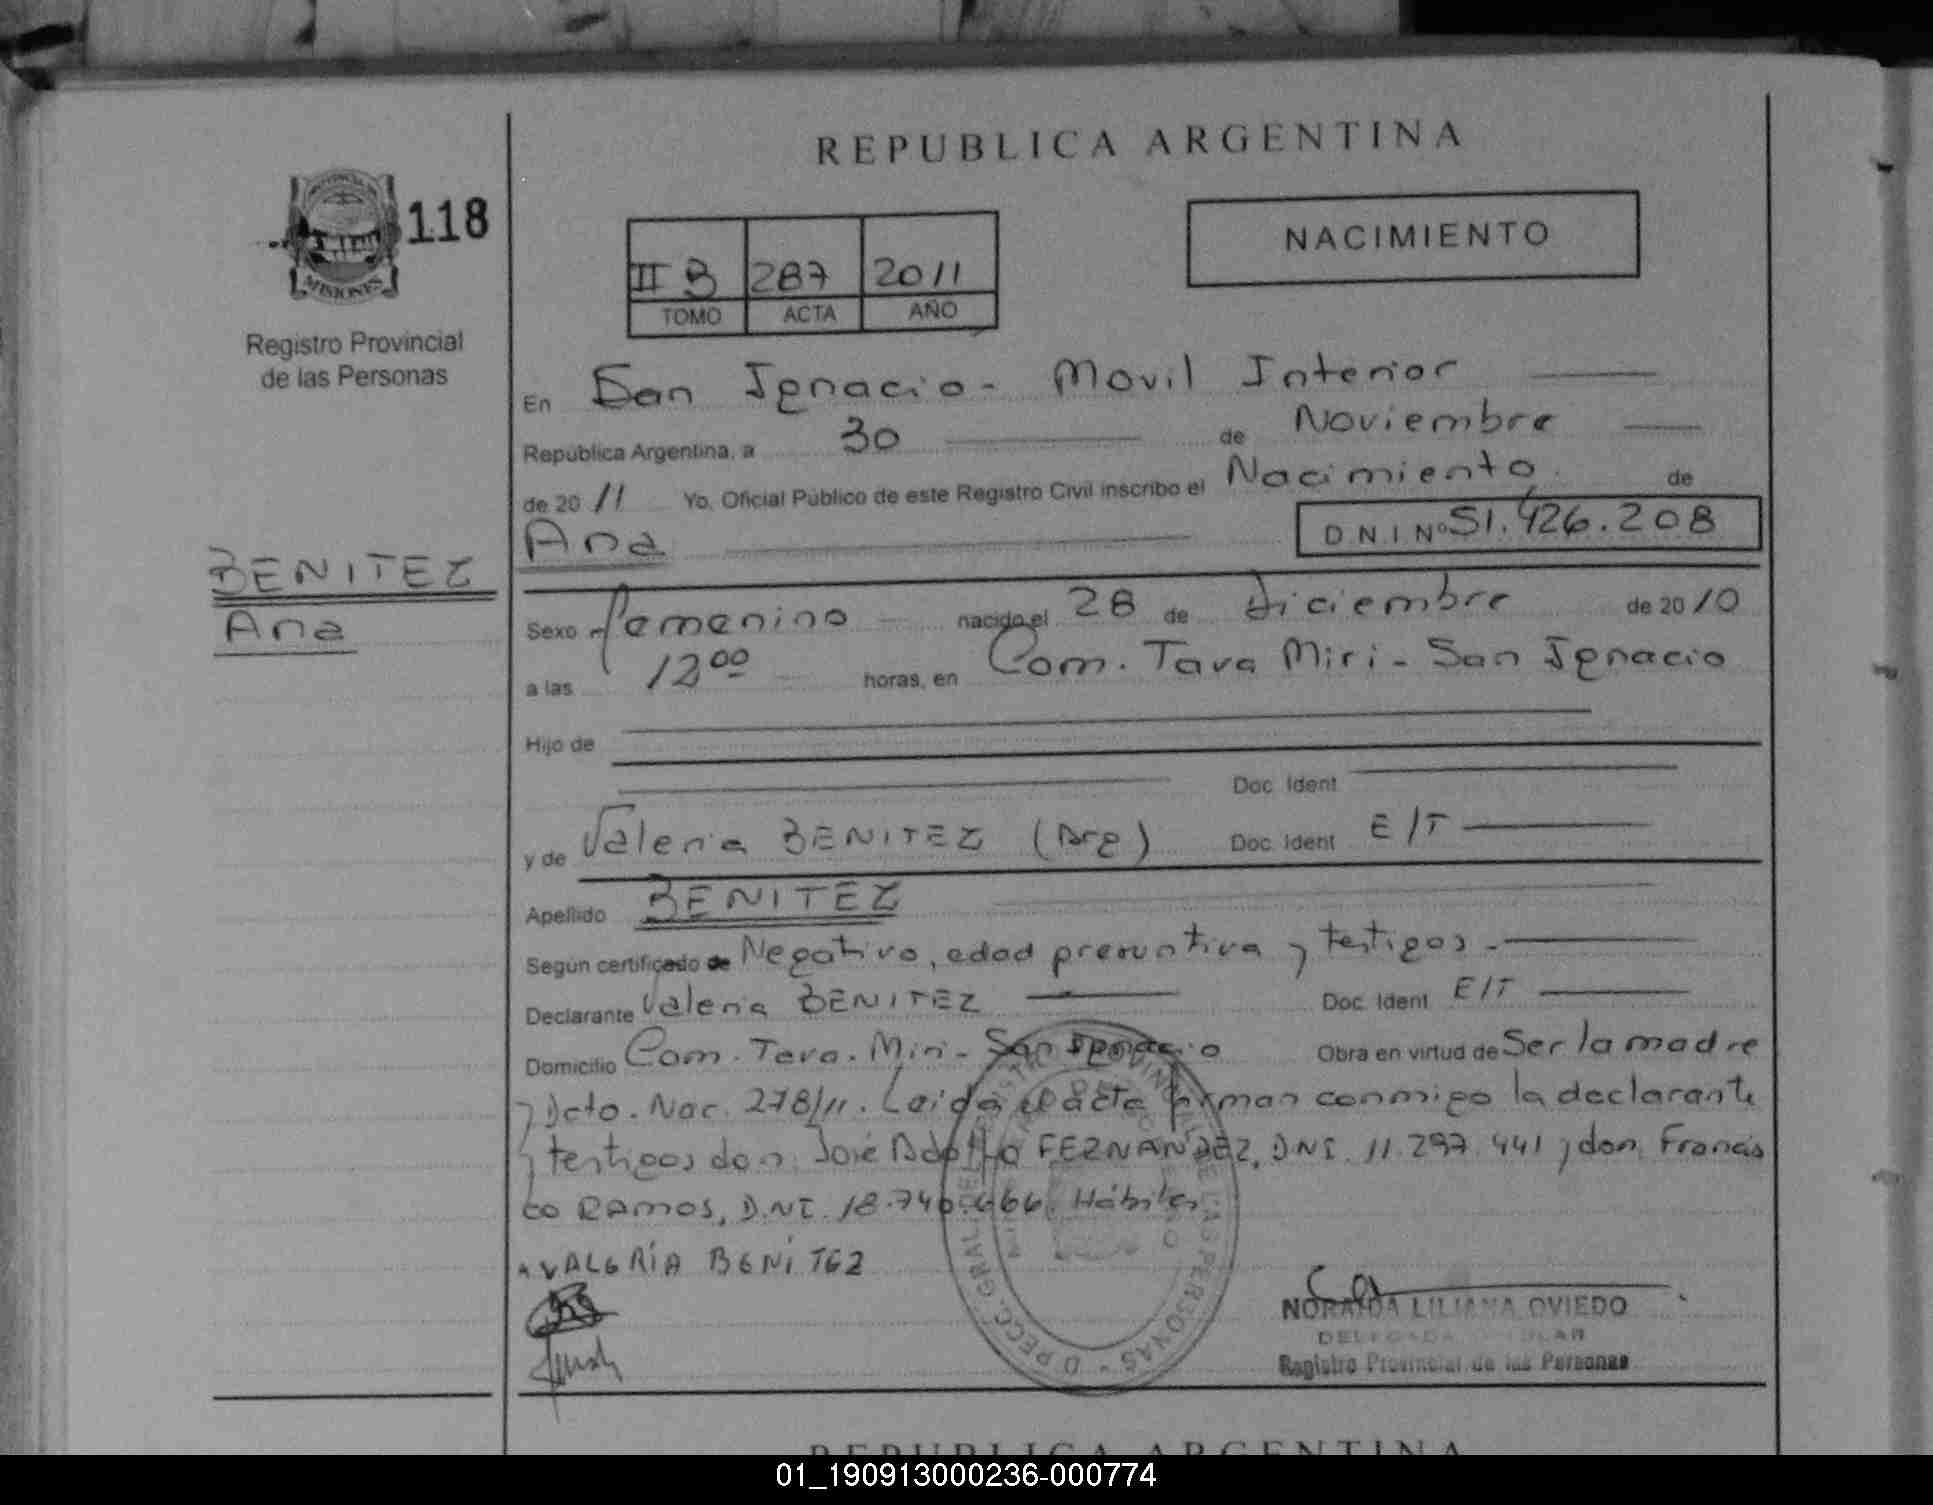 REPUBLICA ARGENTINA
118
MISIONES
Registro Provincial
de las Personas
NACIMIENTO
II B 287 2011
TOMO ACTA AÑO
En San Ignacio - Movil Interior
República Argentina, a 30 de Noviembre
de 2011 Yo, Oficial Público de este Registro Civil inscribo el Nacimiento de
Ana D N I Nº 51.426.208
BENITEZ
Ana
Sexo femenino nacido el 28 de diciembre de 2010
a las 12 00 horas, en Com. Tava Miri - San Ignacio
Hijo de
Doc. Ident
y de Valeria BENITEZ (Arg) Doc. Ident E/T
Apellido BENITEZ
Según certificado de Negativo, edad presuntiva y testigos.
Declarante Valeria BENITEZ Doc. Ident E/T
Domicilio Com. Tava. Miri - San Ignacio Obra en virtud de Ser la madre
y Dcto. Nac. 278/11. Leida el acta firman conmigo la declarante
y testigos don José Adolfo FERNANDEZ, DNI. 11.297.441 y don Francis
co RAMOS, D.NI. 18.740.666. Hábiles
VALERÍA BENÍTEZ
NORAIDA LILIANA OVIEDO
DELEGADA TITULAR
Registro Provincial de las Personas
REPUBLICA ARGENTINA
01_190913000236-000774